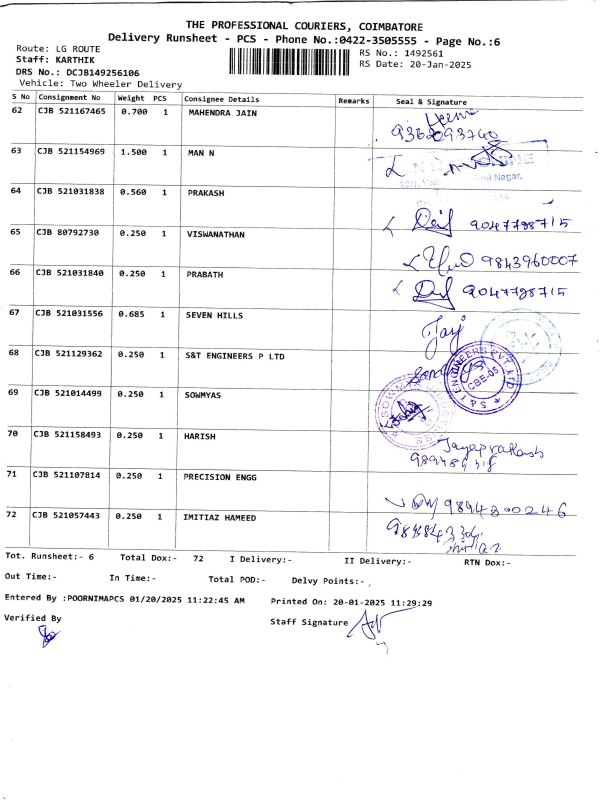 THE PROFESSIONAL COURIERS, COIMBATORE
Delivery Runsheet - PCS - Phone No.:0422-3505555 - Page No.:6
Route: LG ROUTE
RS No.: 1492561
Staff: KARTHIK
RS Date: 20-Jan-2025
DRS No.: DCJB149256106
Vehicle: Two Wheeler Delivery
S No Consignment No Weight PCS Consignee Details Remarks Seal & Signature
62 CJB 521167465 0.700 1 MAHENDRA JAIN
9362093740
63 CJB 521154969 1.500 1 MAN N
64 CJB 521031838 0.560 1 PRAKASH
9047798715
65 CJB 80792730 0.250 1 VISWANATHAN
9843960007
66 CJB 521031840 0.250 1 PRABATH
9047798715
67 CJB 521031556 0.685 1 SEVEN HILLS
68 CJB 521129362 0.250 1 S&T ENGINEERS P LTD
S & T ENGINEERS PVT LTD
CBE-05
69 CJB 521014499 0.250 1 SOWMYAS
70 CJB 521158493 0.250 1 HARISH
Jayaprakash
71 CJB 521107814 0.250 1 PRECISION ENGG
9894800246
72 CJB 521057443 0.250 1 IMITIAZ HAMEED
Tot. Runsheet:- 6 Total Dox:- 72 I Delivery:- II Delivery:- RTN Dox:-
Out Time:- In Time:- Total POD:- Delvy Points:-
Entered By :POORNIMAPCS 01/20/2025 11:22:45 AM Printed On: 20-01-2025 11:29:29
Verified By
Staff Signature